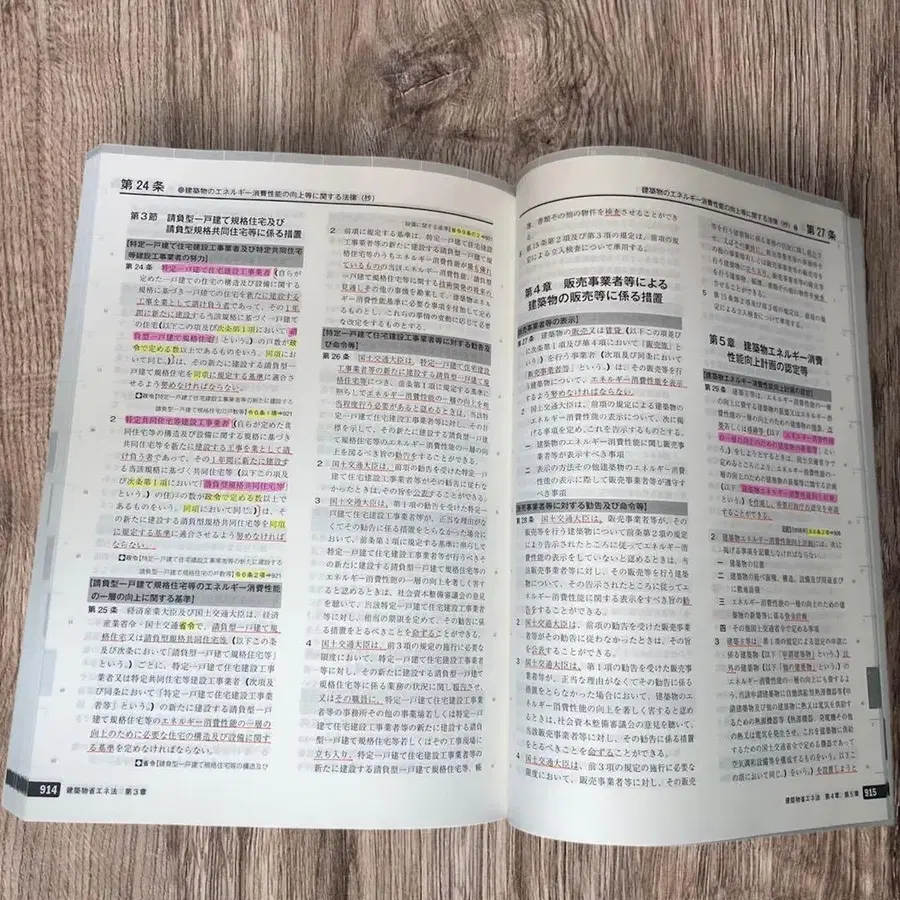 第24条 ●建築物のエネルギー消費性能の向上等に関する法律（抄）
第3節 請負型一戸建て規格住宅及び
請負型規格共同住宅等に係る措置
[特定一戸建て住宅建設工事業者及び特定共同住宅
等建設工事業者の努力]
第24条 特定一戸建て住宅建設工事業者（自らが
定めた一戸建ての住宅の構造及び設備に関する
規格に基づき一戸建ての住宅を新たに建設する
工事を業として請け負う者であって、その1年
間に新たに建設する当該規格に基づく一戸建て
の住宅（以下この項及び次条第1項において「請
負型一戸建て規格住宅」という。）の戸数が政
令で定める数以上であるものをいう。同項にお
いて同じ。）は、その新たに建設する請負型一
戸建て規格住宅を同項に規定する基準に適合さ
せるよう努めなければならない。
✪政令[特定一戸建て住宅建設工事業者の新たに建設する
請負型一戸建て規格住宅の戸数等]令6条1項⇨921
2 特定共同住宅等建設工事業者（自らが定めた共
同住宅等の構造及び設備に関する規格に基づき共
同住宅等を新たに建設する工事を業として請
け負う者であって、その1年間に新たに建設す
る当該規格に基づく共同住宅等（以下この項及
び次条第1項において「請負型規格共同住宅等」
という。）の住戸の数が政令で定める数以上で
あるものをいう。同項において同じ。）は、そ
の新たに建設する請負型規格共同住宅等を同項
に規定する基準に適合させるよう努めなければ
ならない。
✪政令[特定共同住宅等建設工事業者の新たに建設する
請負型規格共同住宅等の住戸の数等]令6条2項⇨921
[請負型一戸建て規格住宅等のエネルギー消費性能
の一層の向上に関する基準]
第25条 経済産業大臣及び国土交通大臣は、経済
産業省令・国土交通省令で、請負型一戸建て規
格住宅又は請負型規格共同住宅等（以下この条
及び次条において「請負型一戸建て規格住宅等」
という。）ごとに、特定一戸建て住宅建設工事
業者又は特定共同住宅等建設工事業者（次項及
び同条において「特定一戸建て住宅建設工事業
者等」という。）の新たに建設する請負型一戸建
て規格住宅等のエネルギー消費性能の一層の
向上のために必要な住宅の構造及び設備に関す
る基準を定めなければならない。
✪省令[請負型一戸建て規格住宅等の構造及び
設備に関する基準]省令9条の2⇨
2 前項に規定する基準は、特定一戸建て住宅建設
工事業者等の新たに建設する請負型一戸建て規
格住宅等のうちエネルギー消費性能が最も優れ
ているものの当該エネルギー消費性能、請負型
一戸建て規格住宅等に関する技術開発の将来の
見通しその他の事情を勘案して、建築物エネル
ギー消費性能基準に必要な事項を付加して定め
るものとし、これらの事情の変動に応じて必要
な改定をするものとする。
[特定一戸建て住宅建設工事業者等に対する勧告及
び命令等]
第26条 国土交通大臣は、特定一戸建て住宅建設
工事業者等の新たに建設する請負型一戸建て規
格住宅等につき、前条第1項に規定する基準に
照らしてエネルギー消費性能の一層の向上を相
当程度行う必要があると認めるときは、当該特
定一戸建て住宅建設工事業者等に対し、その目
標を示して、その新たに建設する請負型一戸建
て規格住宅等のエネルギー消費性能の一層の向
上を図るべき旨の勧告をすることができる。
2 国土交通大臣は、前項の勧告を受けた特定一戸
建て住宅建設工事業者等がその勧告に従わな
かったときは、その旨を公表することができる。
3 国土交通大臣は、第1項の勧告を受けた特定一
戸建て住宅建設工事業者等が、正当な理由がな
くてその勧告に係る措置をとらなかった場合に
おいて、前条第1項に規定する基準に照らして
特定一戸建て住宅建設工事業者等が行うべきそ
の新たに建設する請負型一戸建て規格住宅等の
エネルギー消費性能の一層の向上を著しく害す
ると認めるときは、社会資本整備審議会の意見
を聴いて、当該特定一戸建て住宅建設工事業者
等に対し、相当の期限を定めて、その勧告に係
る措置をとるべきことを命ずることができる。
4 国土交通大臣は、前3項の規定の施行に必要な
限度において、特定一戸建て住宅建設工事業者
等に対し、その新たに建設する請負型一戸建て
規格住宅等に係る業務の状況に関し報告させ、
又はその職員に、特定一戸建て住宅建設工事業
者等の事務所その他の事業場若しくは特定一戸
建て住宅建設工事業者等の新たに建設する請負型
一戸建て規格住宅等若しくはその工事現場に
立ち入り、特定一戸建て住宅建設工事業者等の
新たに建設する請負型一戸建て規格住宅等、帳
914 建築物省エネ法 第3章
建築物のエネルギー消費性能の向上等に関する法律（抄） 第27条
簿、書類その他の物件を検査させることができ
る。
第15条第2項及び第3項の規定は、前項の規
定による立入検査について準用する。
第4章 販売事業者等による
建築物の販売等に係る措置
[販売事業者等の表示]
第27条 建築物の販売又は賃貸（以下この項並び
に次条第1項及び第4項において「販売等」と
いう。）を行う事業者（次項及び同条において
「販売事業者等」という。）は、その販売等を行
う建築物について、エネルギー消費性能を表示
するよう努めなければならない。
2 国土交通大臣は、前項の規定による建築物のエ
ネルギー消費性能の表示について、次に掲
げる事項を定め、これを告示するものとする。
一 建築物のエネルギー消費性能に関し販売事
業者等が表示すべき事項
二 表示の方法その他建築物のエネルギー消費
性能の表示に際して販売事業者等が遵守す
べき事項
[販売事業者等に対する勧告及び命令等]
第28条 国土交通大臣は、販売事業者等が、その
販売等を行う建築物について前条第2項の規定
により告示されたところに従ってエネルギー消
費性能の表示をしていないと認めるときは、当
該販売事業者等に対し、その販売等を行う建築
物について、その告示されたところに従ってエ
ネルギー消費性能に関する表示をすべき旨の勧
告をすることができる。
2 国土交通大臣は、前項の勧告を受けた販売事業
者等がその勧告に従わなかったときは、その旨
を公表することができる。
3 国土交通大臣は、第1項の勧告を受けた販売事
業者等が、正当な理由がなくてその勧告に係る
措置をとらなかった場合において、建築物のエ
ネルギー消費性能の向上を著しく害すると認め
るときは、社会資本整備審議会の意見を聴いて、
当該販売事業者等に対し、その勧告に係る措置
をとるべきことを命ずることができる。
4 国土交通大臣は、前3項の規定の施行に必要な
限度において、販売事業者等に対し、その販売
5 第15条第2項及び第3項の規定は、前項の規
定による立入検査について準用する。
第5章 建築物エネルギー消費
性能向上計画の認定等
[建築物エネルギー消費性能向上計画の認定]
2 建築物エネルギー消費性能向上計画には、次に
掲げる事項を記載しなければならない。
一 建築物の位置
二 建築物の延べ面積、構造、設備及び用途並び
に敷地面積
三 エネルギー消費性能の一層の向上のための建
築物の新築等に係る資金計画
四 その他国土交通省令で定める事項
建築物省エネ法 第4章／第5章 915